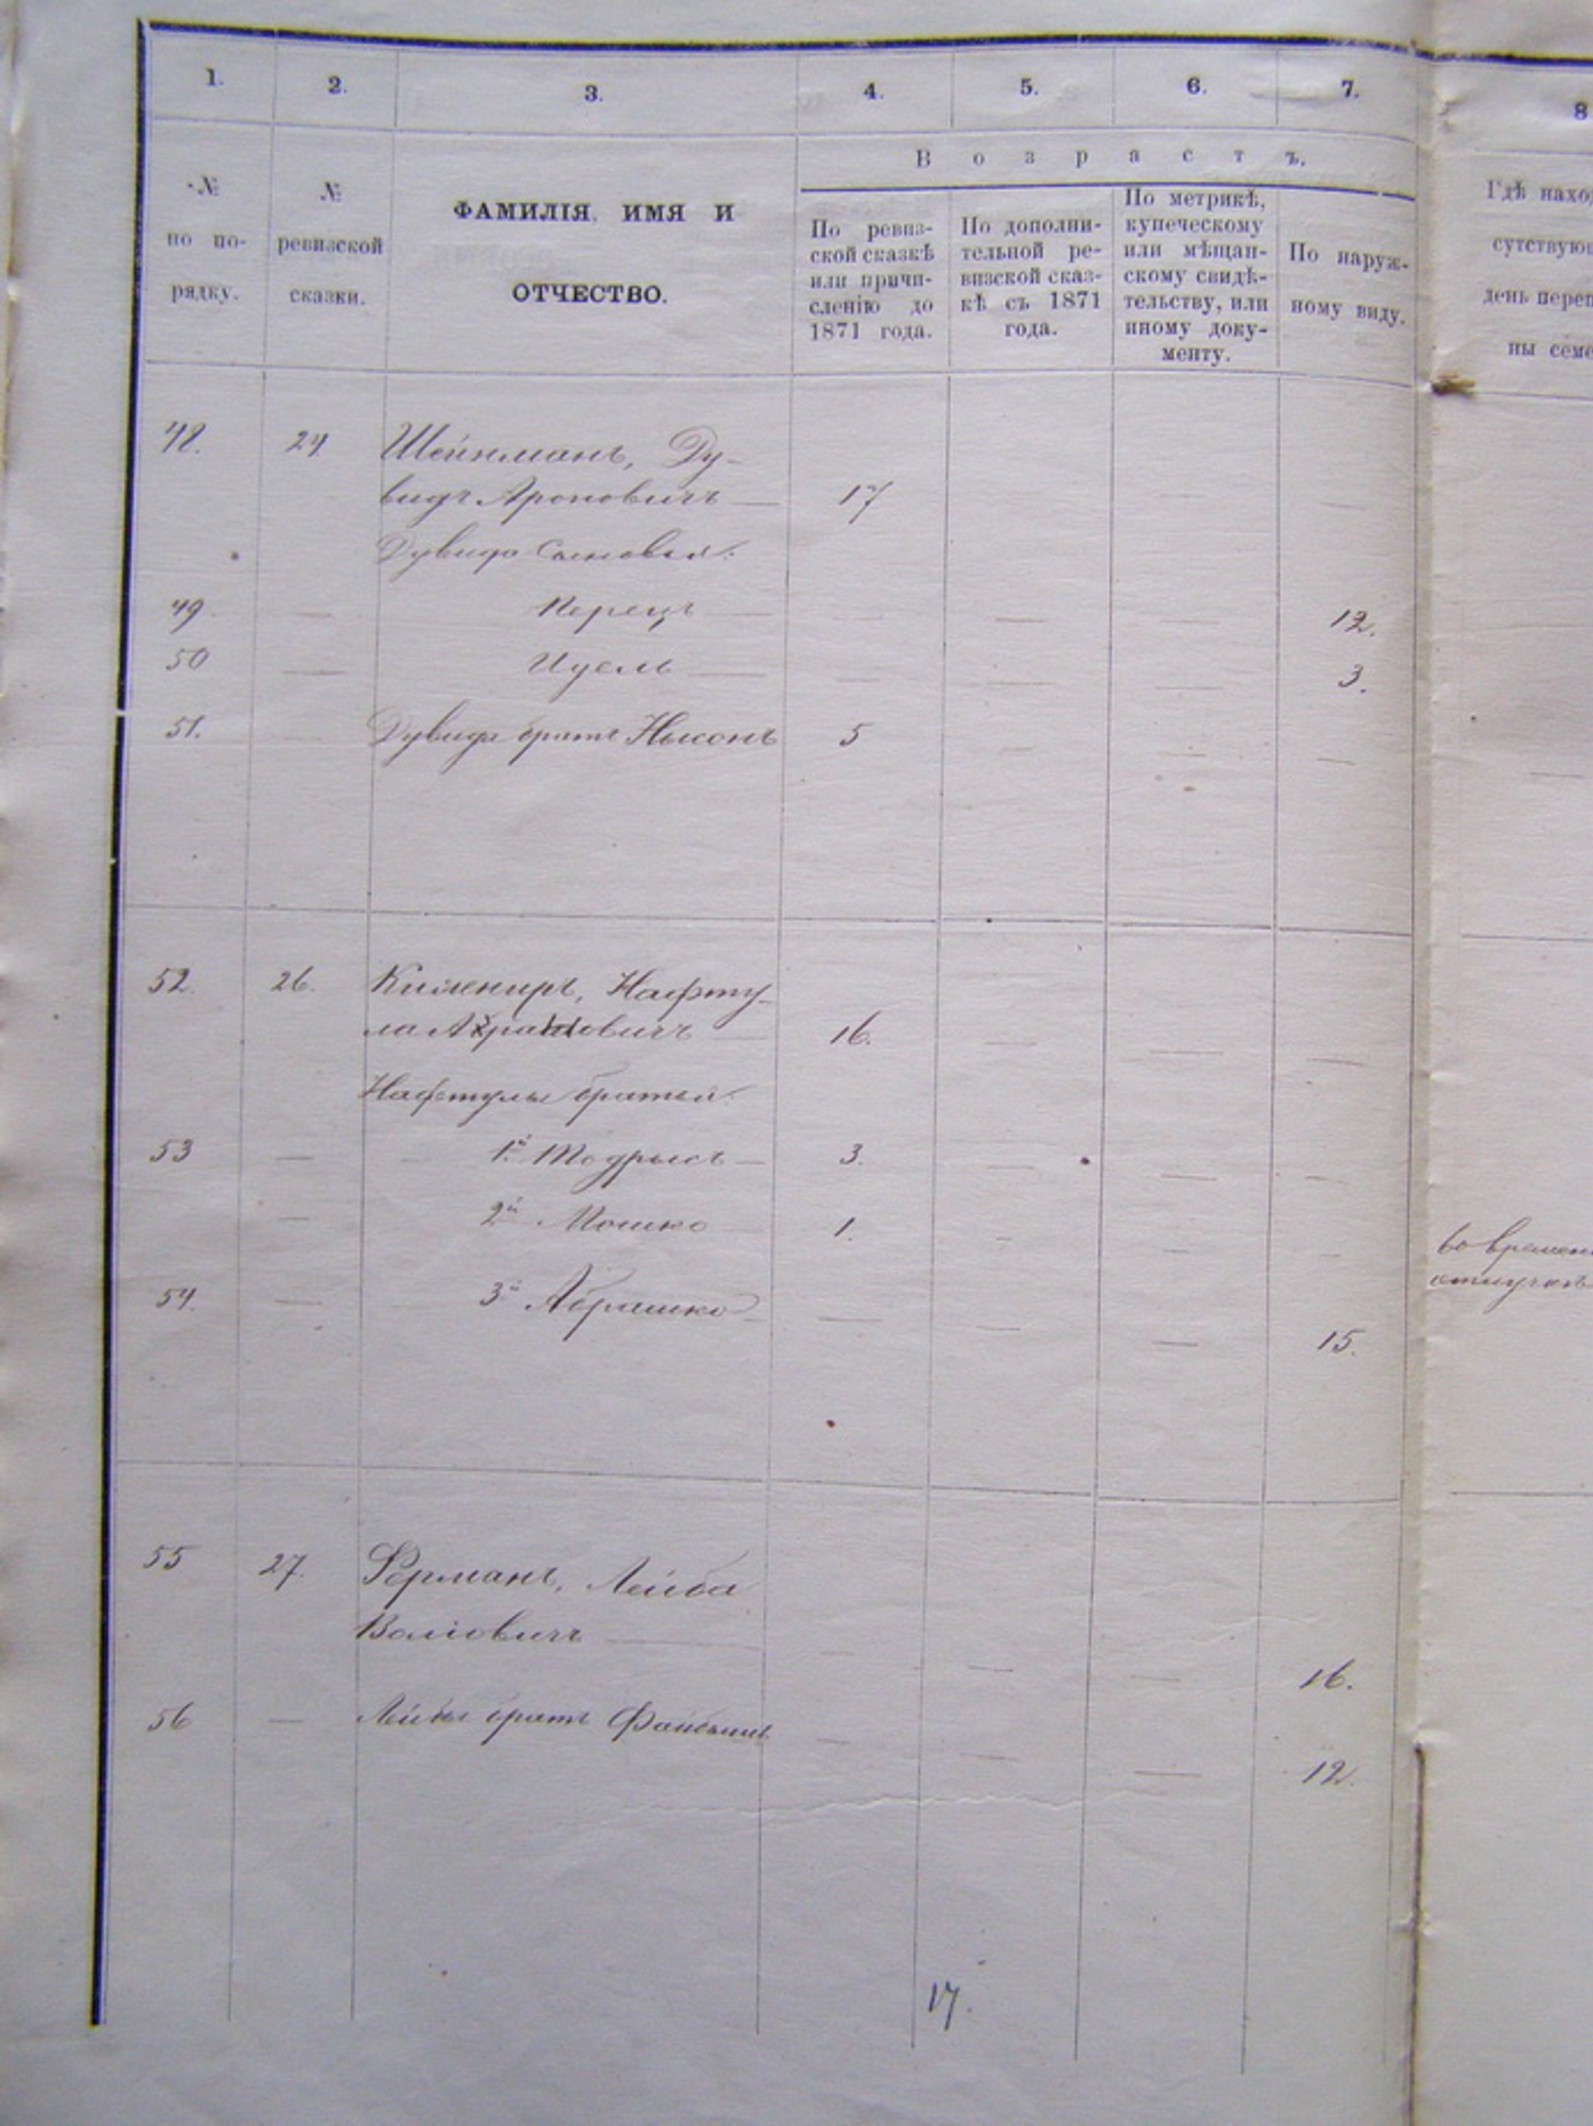 1. 2. 3. 4. 5. 6. 7. 8
№ по по-рядку.
№ ревизской сказки.
ФАМИЛІЯ, ИМЯ И
ОТЧЕСТВО.
Возрастъ.
По ревиз-
ской сказкѣ
или причи-
сленію до
1871 года.
По дополни-
тельной ре-
визской сказ-
кѣ съ 1871
года.
По метрикѣ,
купеческому
или мѣщан-
скому свидѣ-
тельству, или
иному доку-
менту.
По наруж-
ному виду.
Гдѣ нахо
сутствую
день переп
ны семе
48. 24 Шейнманъ, Ду-
видъ Ароновичъ — 17 —
Дувида сыновья:
49 — Перецъ — — — — 12.
50 — Иуель — — — — 3.
51. — Дувида братъ Нысонъ 5 — — —
52. 26. Кижниръ, Нафту-
ла Абрамовичъ — 16. — — —
Нафтулы братья:
53 — 1й Тодрысъ — 3. — — —
— 2й Мошко — 1. — — —
во времен
отлучкѣ
54. — 3й Абрашко — — — — 15.
55 27. Ферманъ, Лейба
Волковичъ — — — — 16.
56 — Лейбы братъ Файбышъ — — — 12.
17.